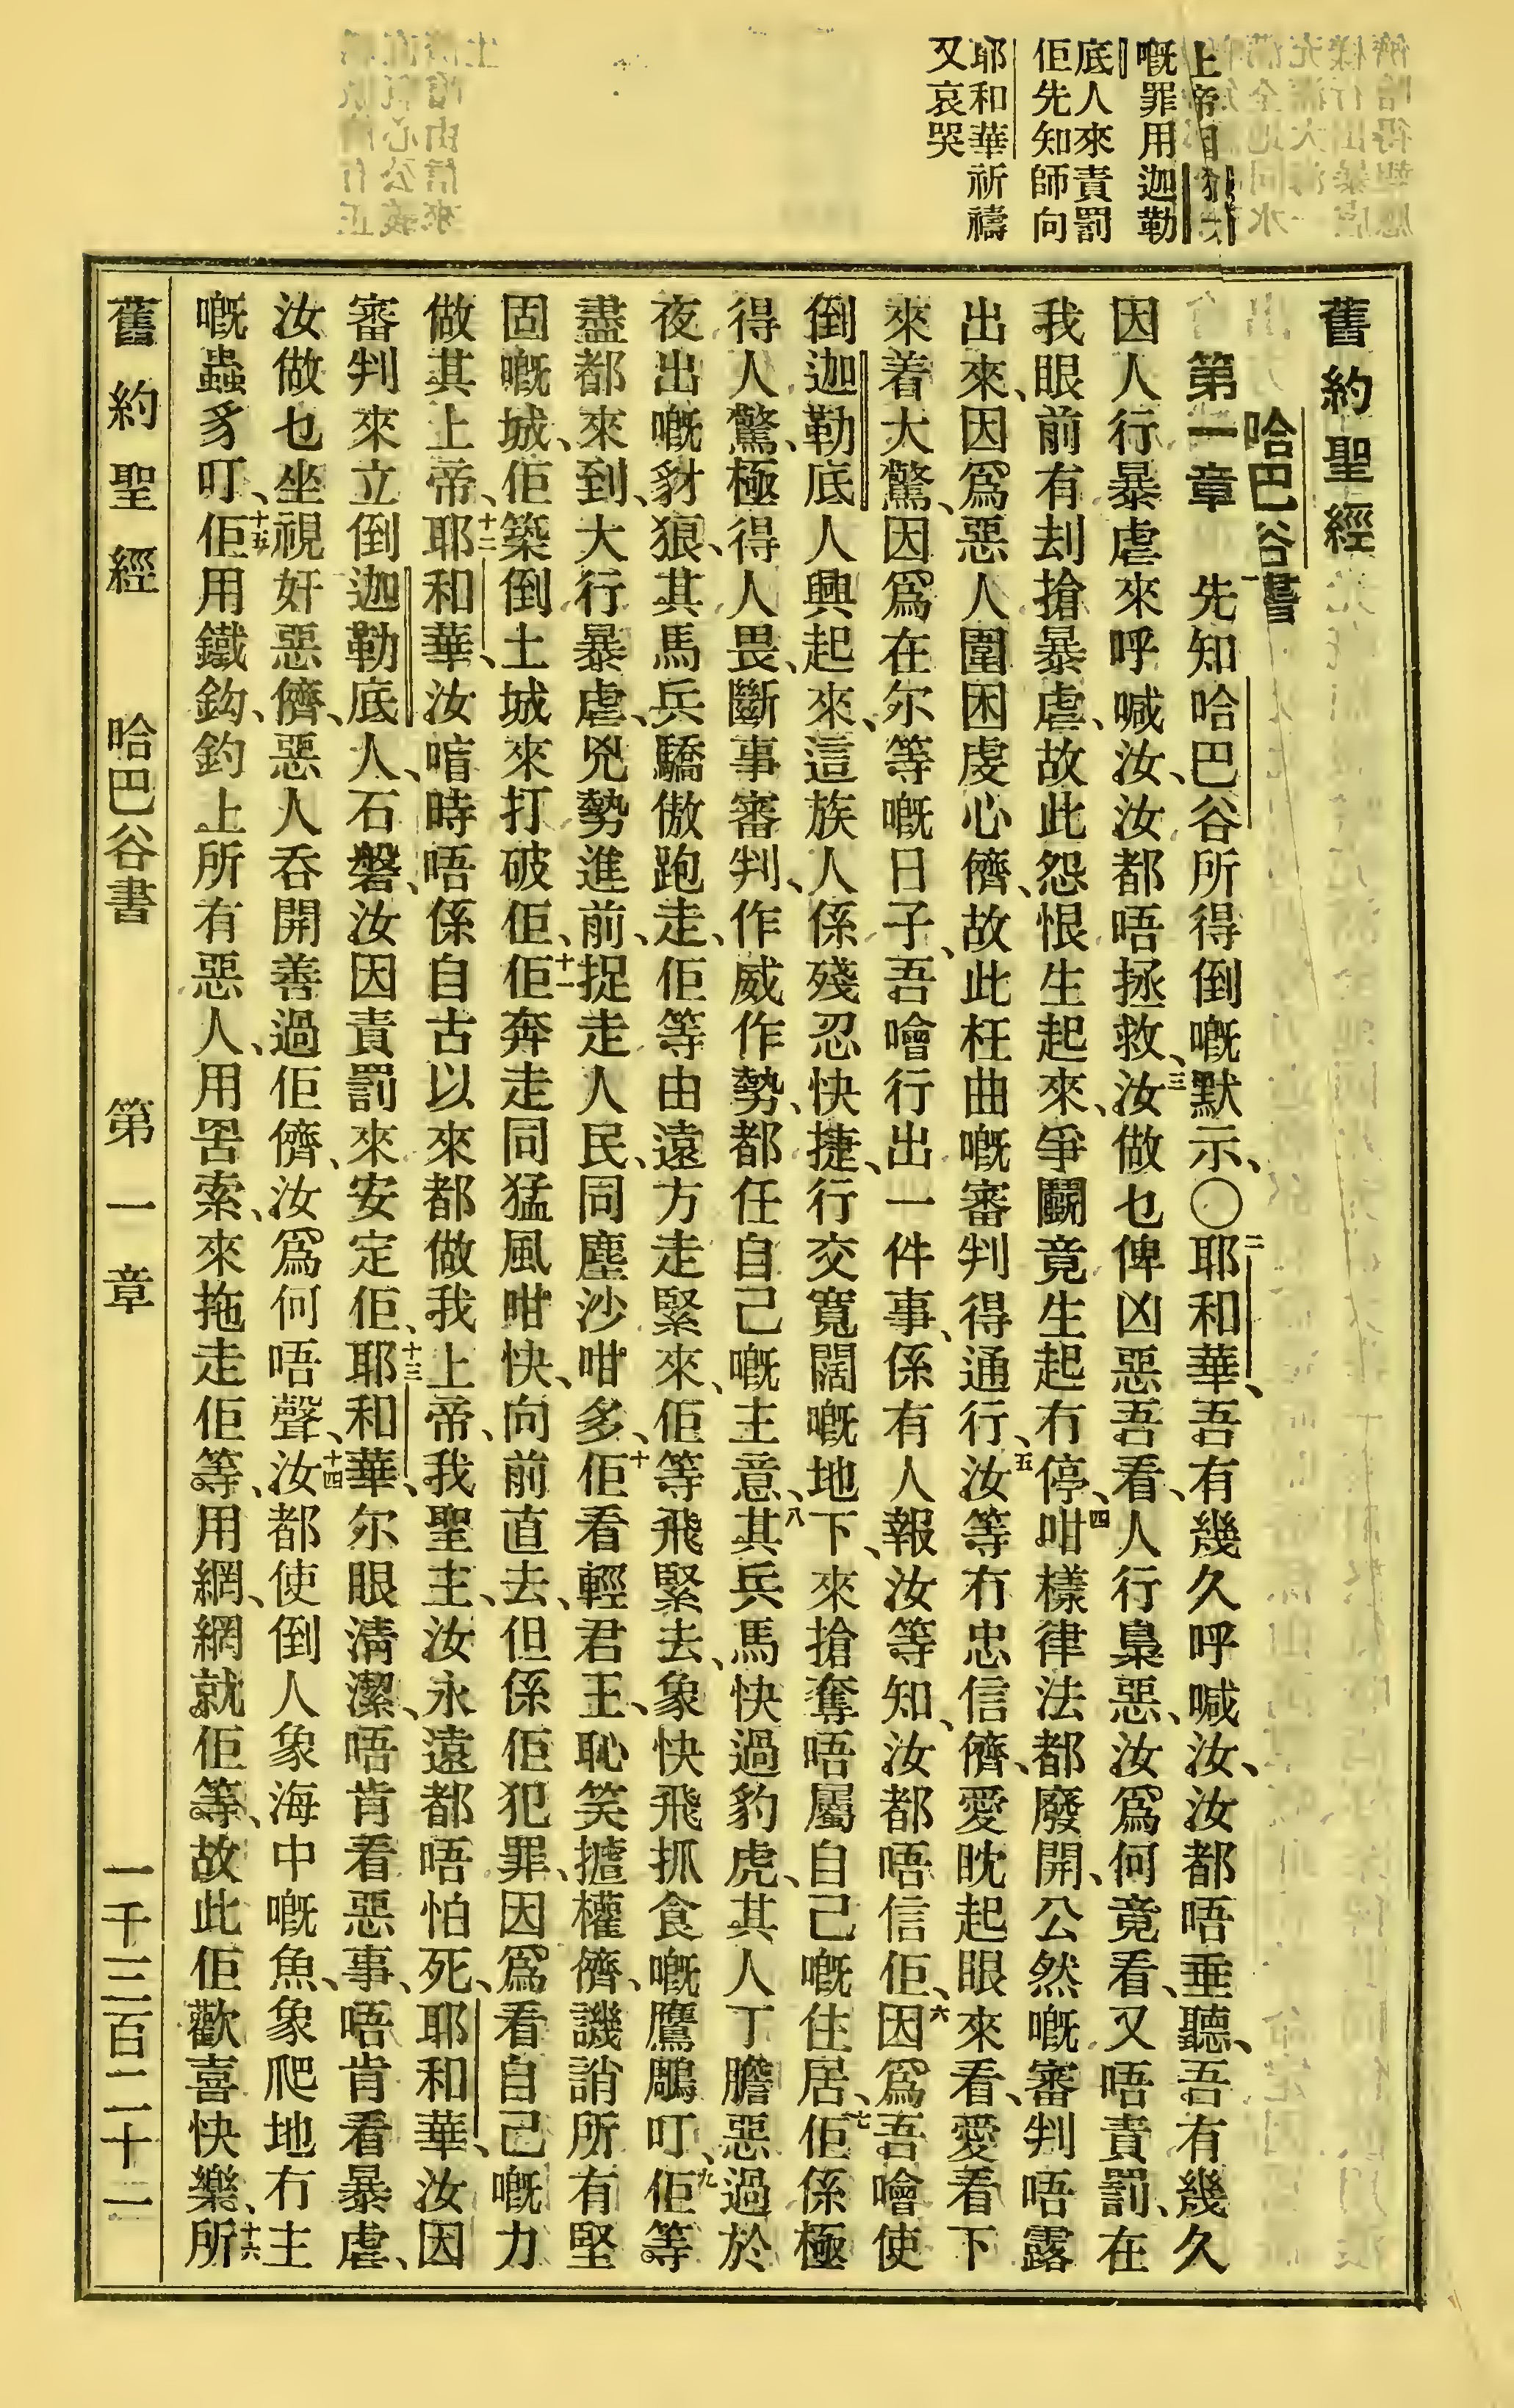 上帝因猶大
嘅罪用迦勒
底人來責罰
佢先知師向
耶和華祈禱
又哀哭
舊約聖經
哈巴谷書
第一章 先知哈巴谷所得倒嘅默示、〇二耶和華、吾有幾久呼喊汝、汝都唔垂聽、吾有幾久
因人行暴虐來呼喊汝、汝都唔拯救、三汝做乜俾凶惡吾看、人行梟惡、汝爲何竟看、又唔責罰、在
我眼前有刦搶暴虐、故此怨恨生起來、爭鬭竟生起冇停、四咁樣律法都廢開、公然嘅審判唔露
出來、因爲惡人圍困虔心儕、故此枉曲嘅審判得通行、五汝等冇忠信儕、愛眈起眼來看、愛看下
來着大驚、因爲在尔等嘅日子、吾噲行出一件事、係有人報汝等知、汝都唔信佢、六因爲吾噲使
倒迦勒底人興起來、這族人係殘忍快捷、行交寬闊嘅地下、來搶奪唔屬自己嘅住居、七佢係極
得人驚、極得人畏、斷事審判、作威作勢、都任自己嘅主意、八其兵馬快過豹虎、其人丁膽惡過於
夜出嘅豺狼、其馬兵驕傲跑走、佢等由遠方走緊來、佢等飛緊去、象快飛抓食嘅鷹鵰叮、九佢等
盡都來到、大行暴虐、兇勢進前、捉走人民、同塵沙咁多、十佢看輕君王、恥笑摣權儕、譏誚所有堅
固嘅城、佢築倒土城來打破佢、十一佢奔走同猛風咁快、向前直去、但係佢犯罪、因爲看自己嘅力
做其上帝、十二耶和華、汝唷時唔係自古以來都做我上帝、我聖主、汝永遠都唔怕死、耶和華、汝因
審判來立倒迦勒底人、石磐、汝因責罰來安定佢、十三耶和華、尔眼淸潔、唔肯看惡事、唔肯看暴虐、
汝做乜坐視奸惡儕、惡人吞開善過佢儕、汝爲何唔聲、十四汝都使倒人象海中嘅魚、象爬地冇主
嘅蟲豸叮、十五佢用鐵鈎、釣上所有惡人、用罟索、來拖走佢等、用網、網就佢等、故此佢歡喜快樂、十六所
舊約聖經 哈巴谷書 第一章 一千三百二十二